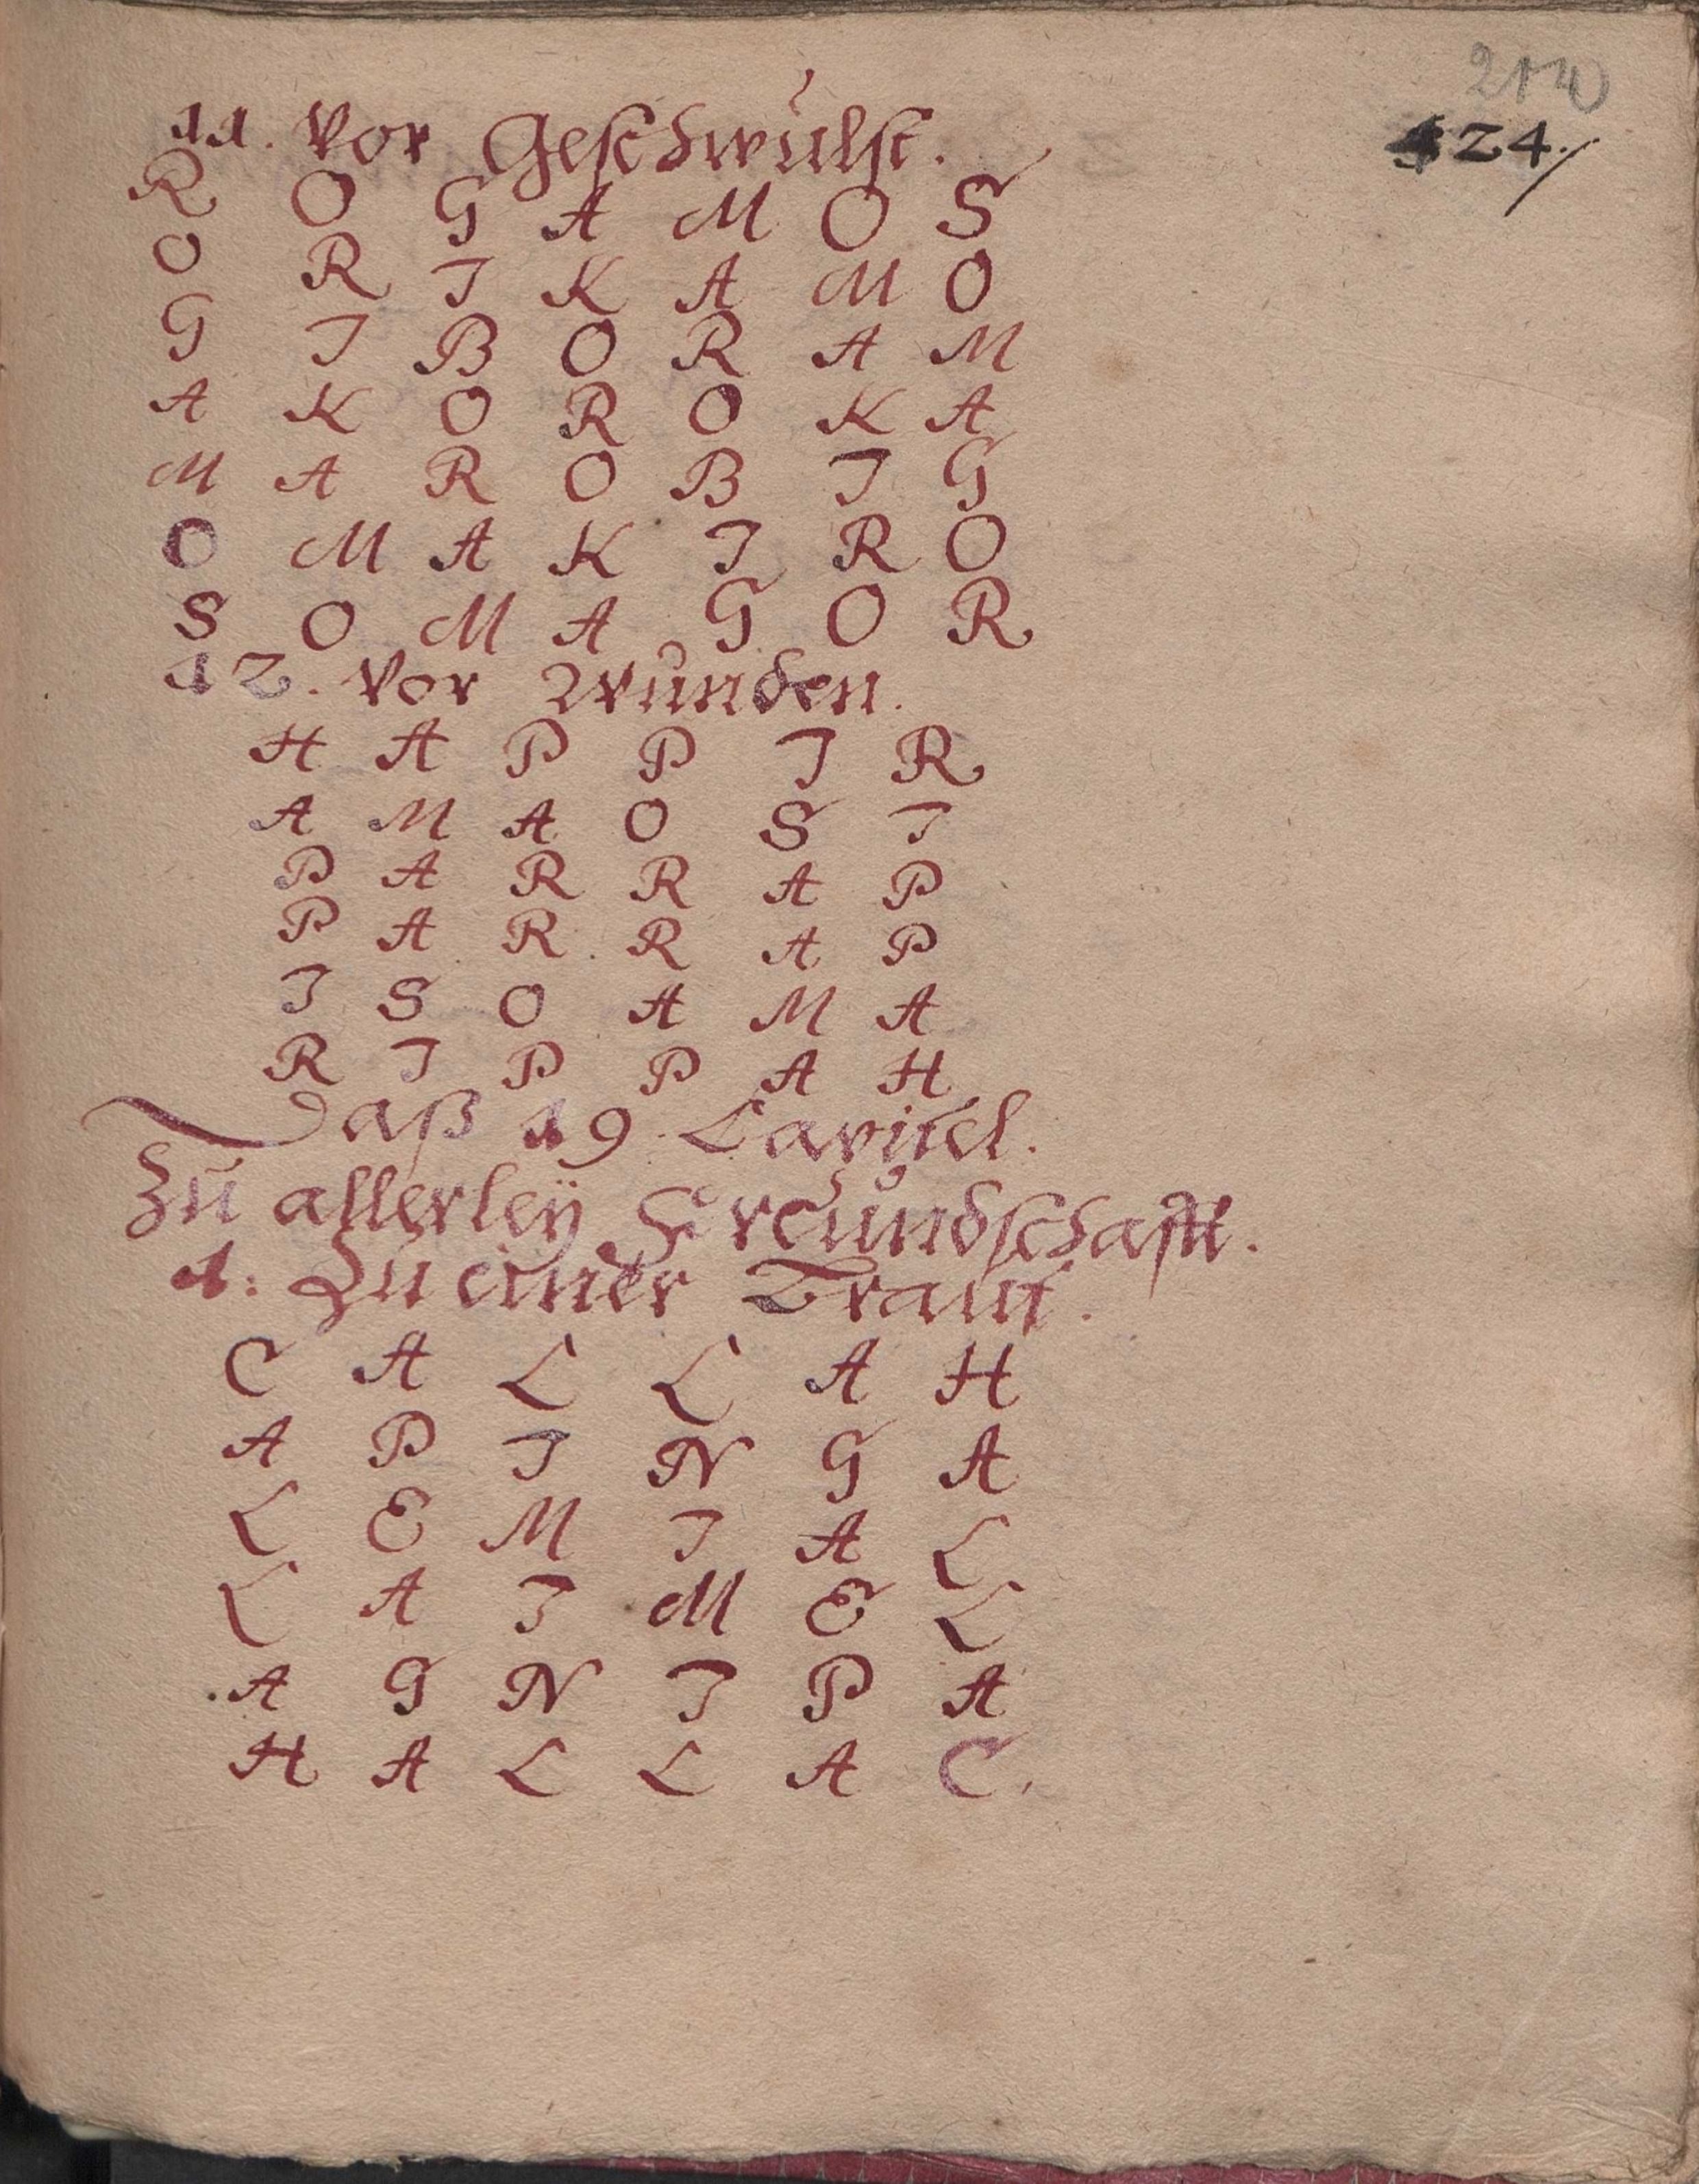 124.
11. Vor Geschwulst.
R O G A M O S
O R I K A M O
G I B O R A M
A K O R O K A
M A R O B I G
O M A K I R O
S O M A G O R
12. Vor Wunden.
H A P P I R
A M A O S I
P A R R A P
P A R R A P
I S O A M A
R I P P A H
Daß 19 Capitel.
Zu allerleÿ Freundschafft.
1. Zu einer Braut.
C A L L A H
A P I N G A
L E M I A L
L A I M E L
A G N I P A
H A L L A C.